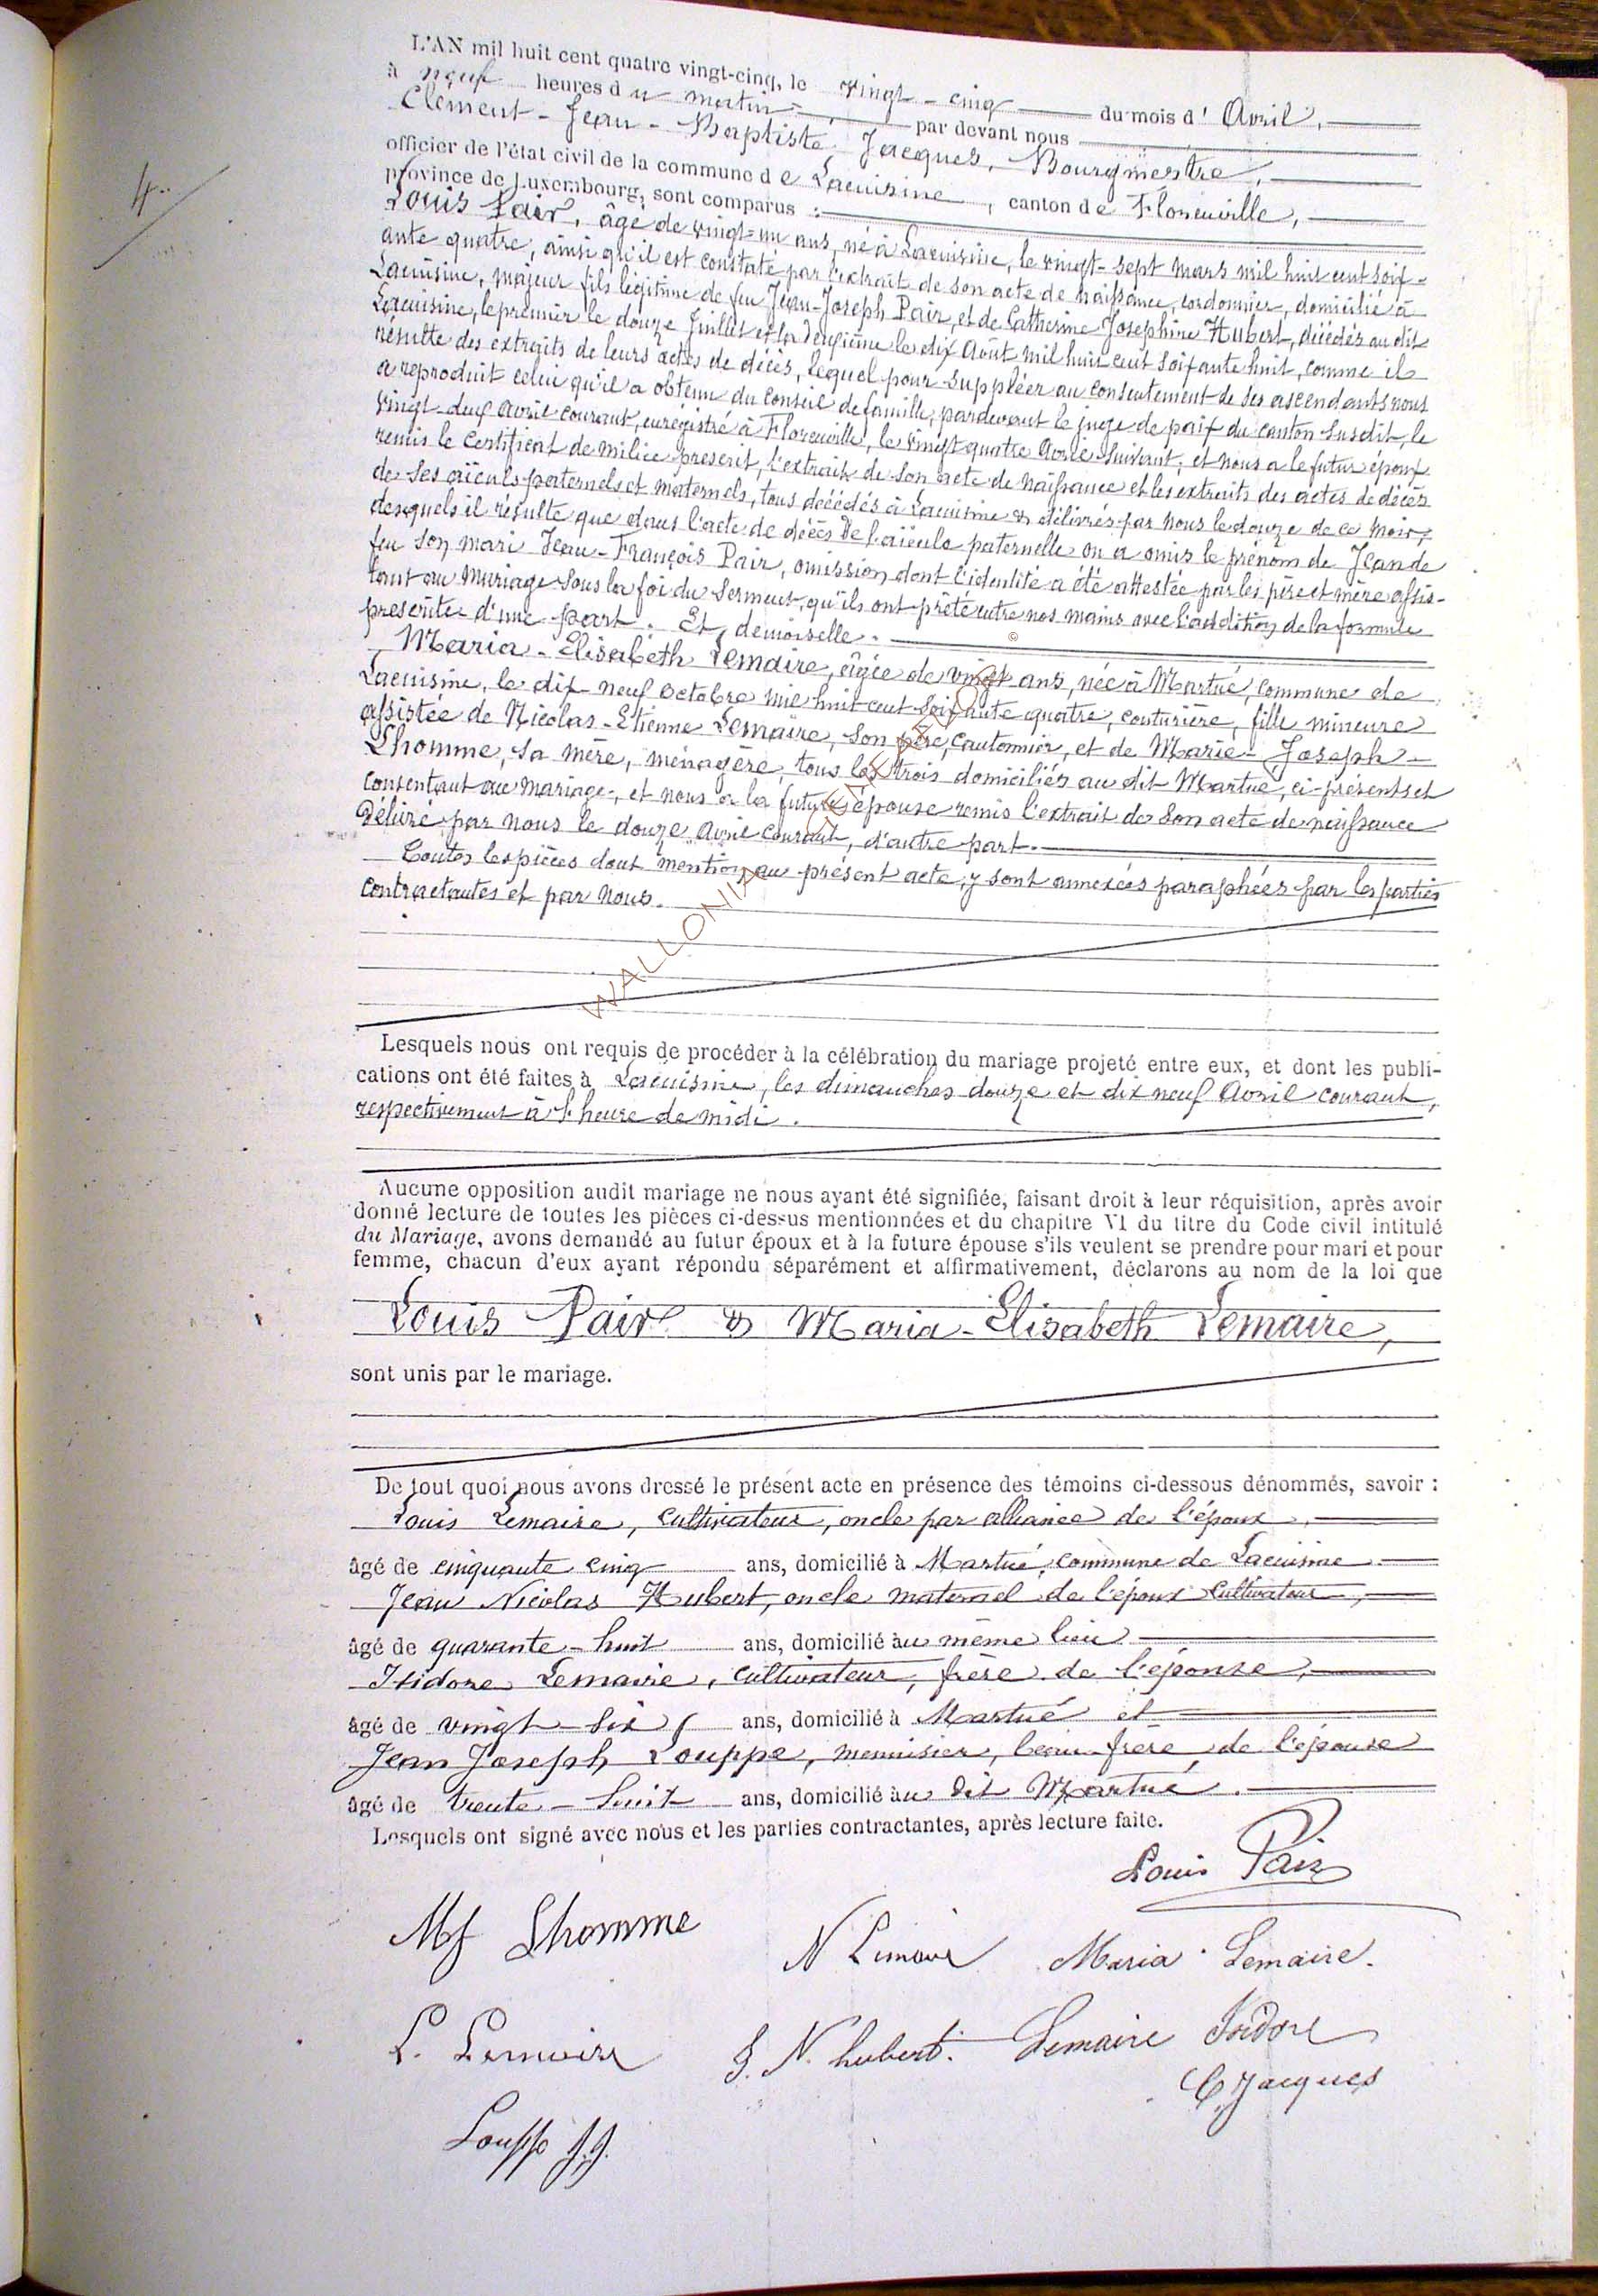 4.
L'AN mil huit cent quatre vingt-cinq, le vingt-cinq du mois d'Avril,
à neuf heures du matin par devant nous
Clément-Jean-Baptiste Jacques, Bourgmestre,
officier de l'état civil de la commune de Lacuisine, canton de Florenville,
province de Luxembourg, sont comparus :
Louis Pair, âgé de vingt-un ans, né à Lacuisine, le vingt-sept mars mil huit cent soix-
ante quatre, ainsi qu'il est constaté par l'extrait de son acte de naissance, cordonnier, domicilié à
Lacuisine, majeur fils légitime de feu Jean-Joseph Pair, et de Catherine Josephine Hubert, décédés au dit
Lacuisine, le premier le douze Juillet et la deuxième le dix Août mil huit cent soixante huit, comme il
résulte des extraits de leurs actes de décès, lequel pour suppléer au consentement de ses ascendants nous
a reproduit celui qu'il a obtenu du conseil de famille, pardevant le juge de paix du canton susdit, le
vingt-deux Avril courant, enrégistré à Florenville, le vingt quatre Avril suivant, et nous a le futur époux
remis le certificat de milice prescrit, l'extrait de son acte de naissance et les extraits des actes de décès
de ses aïeuls paternels et maternels, tous décédés à Lacuisine & délivrés par nous le douze de ce mois,
desquels il résulte que dans l'acte de décès de l'aïeule paternelle on a omis le prénom de Jean de
feu son mari Jean-François Pair, omission dont l'identité a été attestée par les père et mère assis-
tant au mariage sous la foi du serment, qu'ils ont prêté entre nos mains avec l'addition de la formule
prescrite d'une part. Et, demoiselle.
Maria-Elisabeth Lemaire, âgée de vingt ans, née à Martué, commune de
Lacuisine, le dix-neuf Octobre mil huit cent soixante quatre, couturière, fille mineure
assistée de Nicolas-Etienne Lemaire, son père, cantonnier, et de Marie-Joseph-
Lhomme, sa mère, ménagère, tous les trois domiciliés au dit Martué, ci-présents et
consentant au mariage, et nous a la future épouse remis l'extrait de son acte de naissance
délivré par nous le douze Avril courant, d'autre part.
Toutes les pièces dont mention au présent acte, y sont annexées paraphées par les parties
contractantes et par nous.
©
WALLONIA
Lesquels nous ont requis de procéder à la célébration du mariage projeté entre eux, et dont les publi-
cations ont été faites à Lacuisine, les dimanches douze et dix neuf Avril courant,
respectivement à l'heure de midi.
Aucune opposition audit mariage ne nous ayant été signifiée, faisant droit à leur réquisition, après avoir
donné lecture de toutes les pièces ci-dessus mentionnées et du chapitre VI du titre du Code civil intitulé
du Mariage, avons demandé au futur époux et à la future épouse s'ils veulent se prendre pour mari et pour
femme, chacun d'eux ayant répondu séparément et affirmativement, déclarons au nom de la loi que
Louis Pair & Maria-Elisabeth Lemaire,
sont unis par le mariage.
De tout quoi nous avons dressé le présent acte en présence des témoins ci-dessous dénommés, savoir :
Louis Lemaire, cultivateur, oncle par alliance de l'époux,
âgé de cinquante cinq ans, domicilié à Martué, commune de Lacuisine
Jean Nicolas Hubert, oncle maternel de l'époux cultivateur,
âgé de quarante-huit ans, domicilié au même lieu
Isidore Lemaire, cultivateur, frère de l'épouse,
âgé de vingt-six ans, domicilié à Martué et
Jean Joseph Louppe, menuisier, beau-frère de l'épouse
âgé de trente-huit ans, domicilié au dit Martué.
Lesquels ont signé avec nous et les parties contractantes, après lecture faite.
Louis Pair
MJ Lhomme
N Lemaire Maria Lemaire.
L. Lemaire J. N. hubert. Lemaire Isidore
C. Jacques
Louppe J.J.